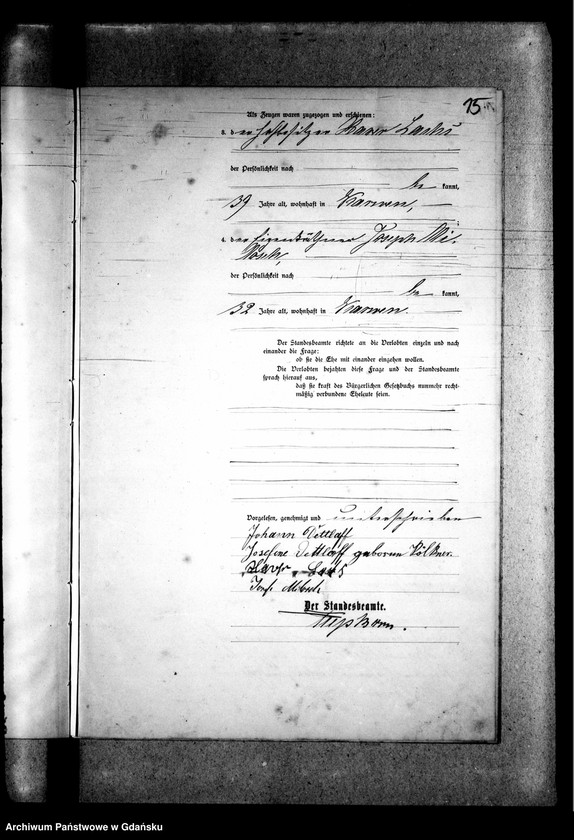 15
Als Zeugen waren zugezogen und erschienen:
3. der Hofbesitzer Xaver
der Persönlichkeit nach
be kannt,
39 Jahre alt, wohnhaft in Karwen,
4. der Eigenkäthner Joseph Mi-
der Persönlichkeit nach
be kannt,
32 Jahre alt, wohnhaft in Karwen.
Der Standesbeamte richtete an die Verlobten einzeln und nach
einander die Frage:
ob sie die Ehe mit einander eingehen wollen.
Die Verlobten bejahten diese Frage und der Standesbeamte
sprach hierauf aus,
daß sie kraft des Bürgerlichen Gesetzbuchs nunmehr recht-
mäßig verbundene Eheleute seien.
Vorgelesen, genehmigt und unterschrieben
Johann Dettlaff
Josefine Dettlaff geboren Völkner.
Der Standesbeamte.
Archiwum Państwowe w Gdańsku